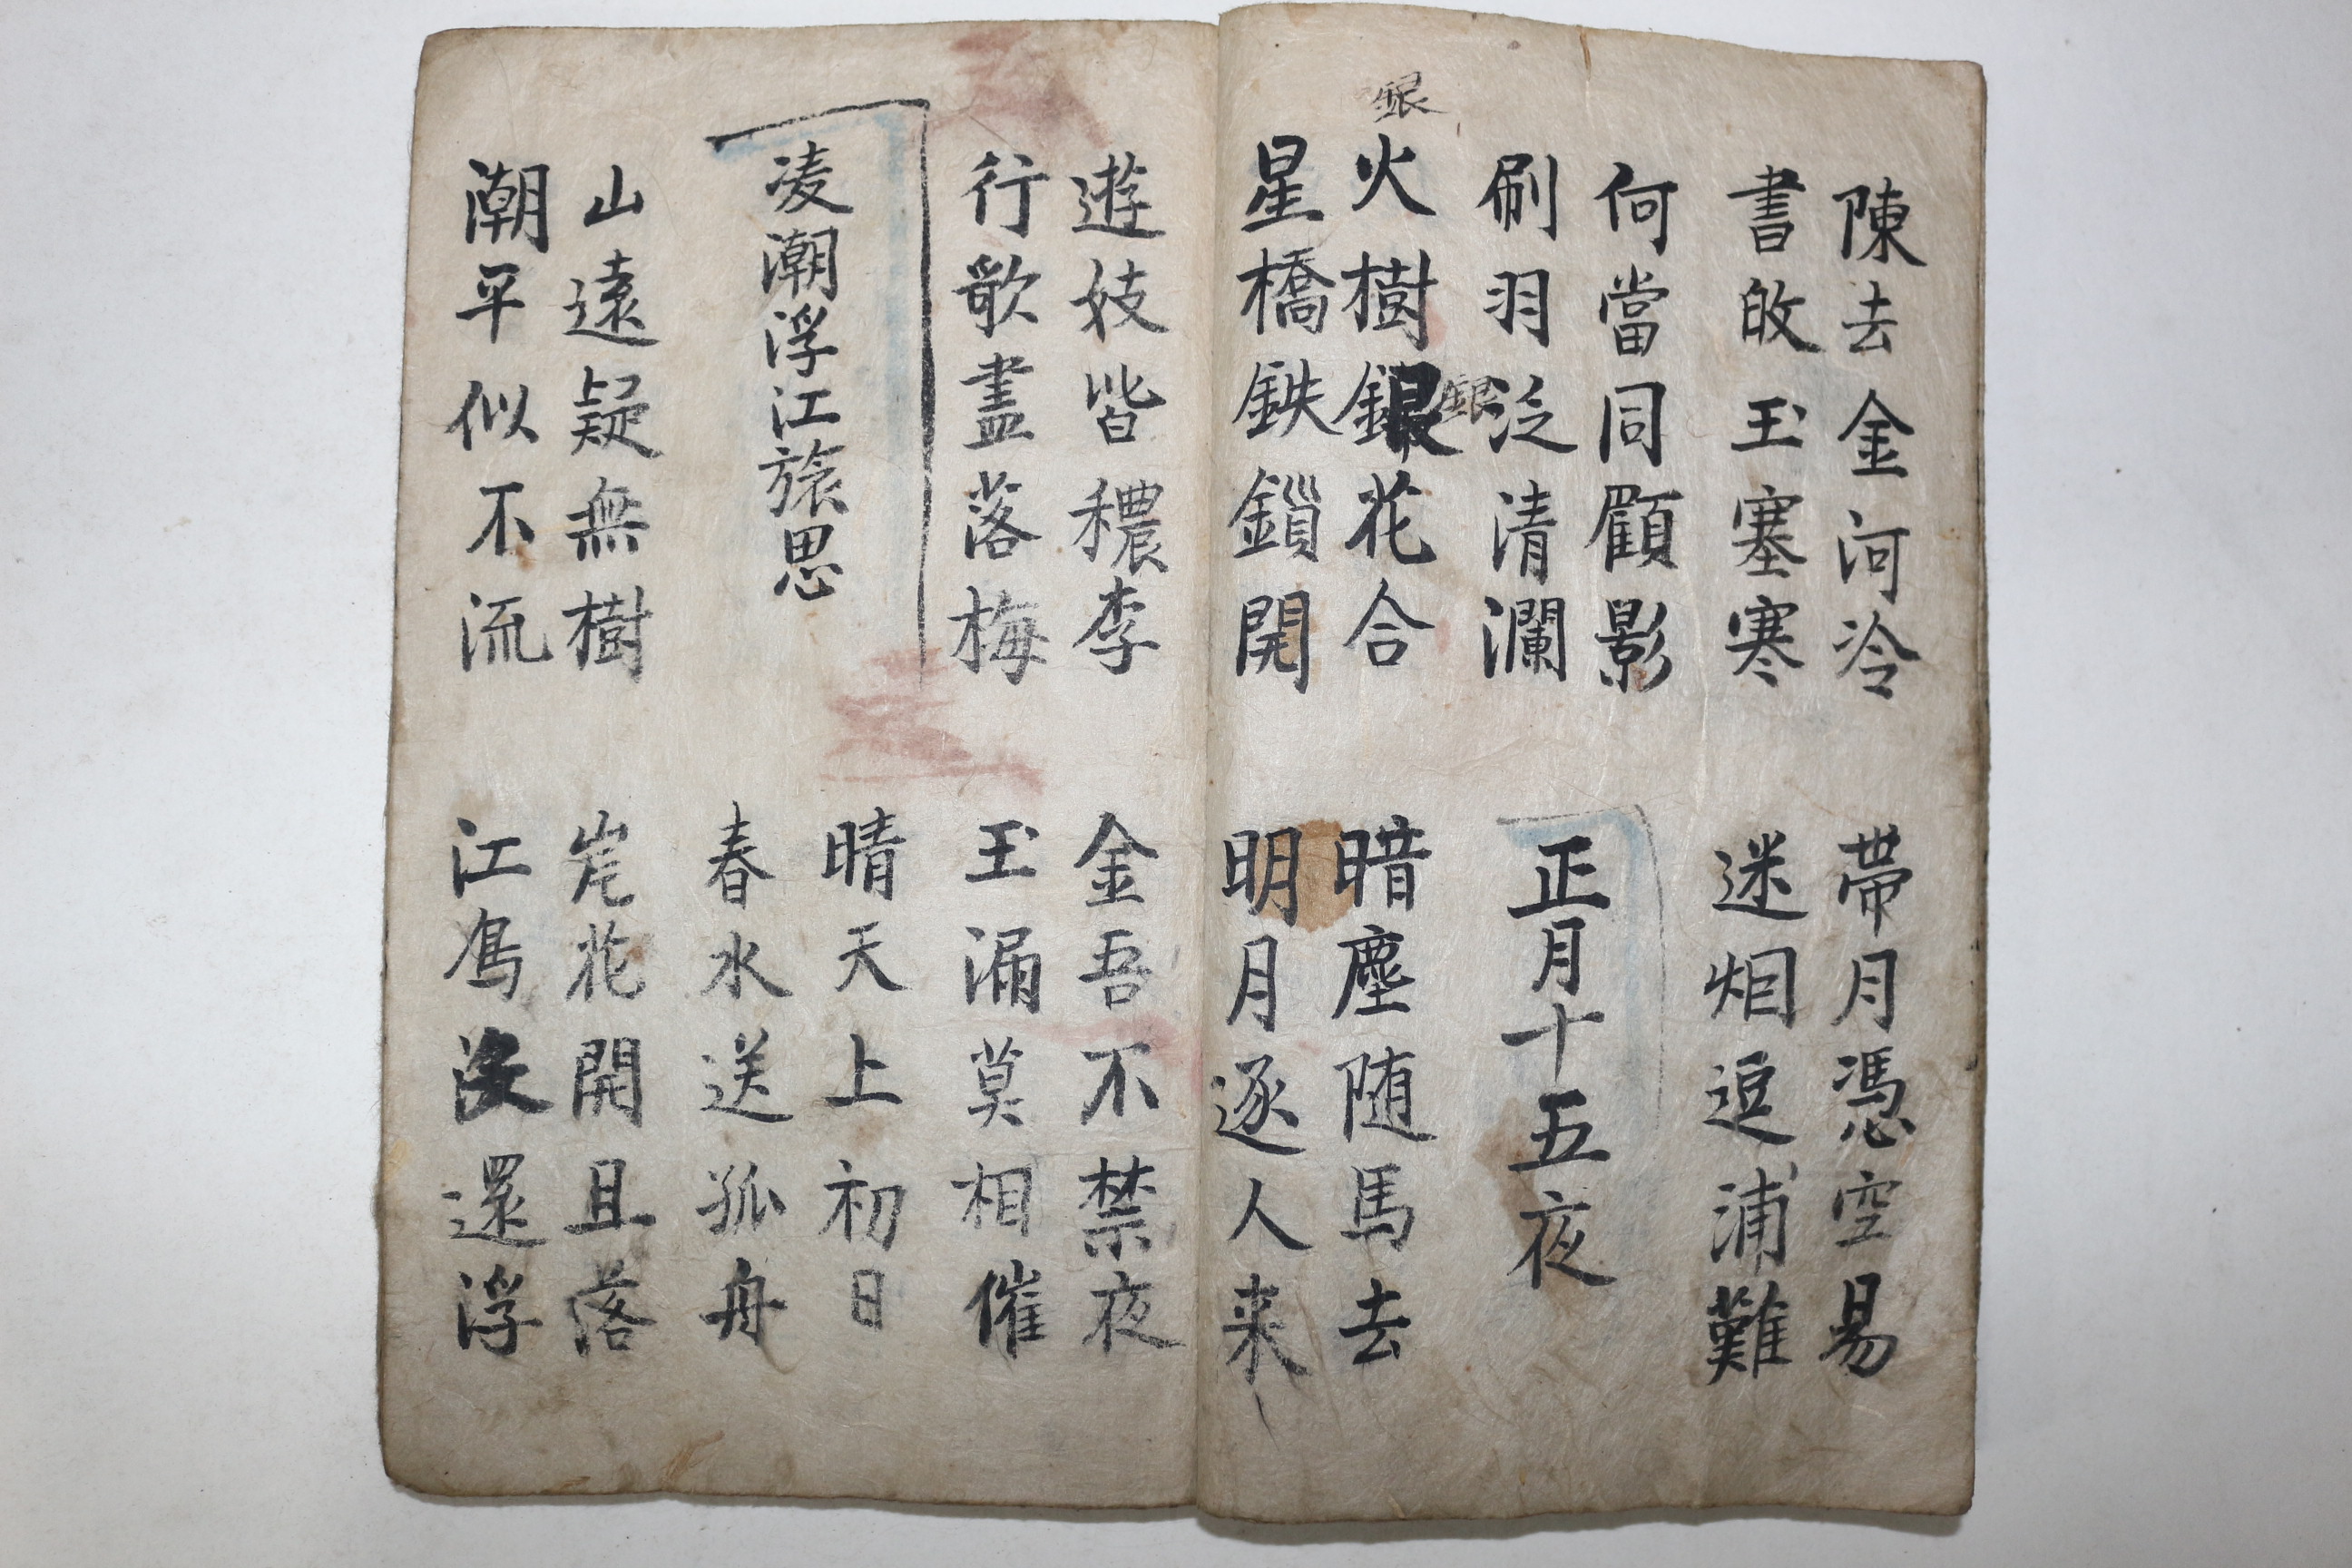 陳去金河冷
書皈玉塞寒
帶月憑空易
迷烟逗浦難
何當同顧影
刷羽泛清瀾
正月十五夜
銀
火樹銀花合
銀
星橋鉄鎖開
暗塵随馬去
明月逐人来
遊妓皆穠李
行歌盡落梅
金吾不禁夜
玉漏莫相催
凌潮浮江旅思
晴天上初日
春水送孤舟
山遠疑無樹
潮平似不流
岸花開且落
江鳥没還浮